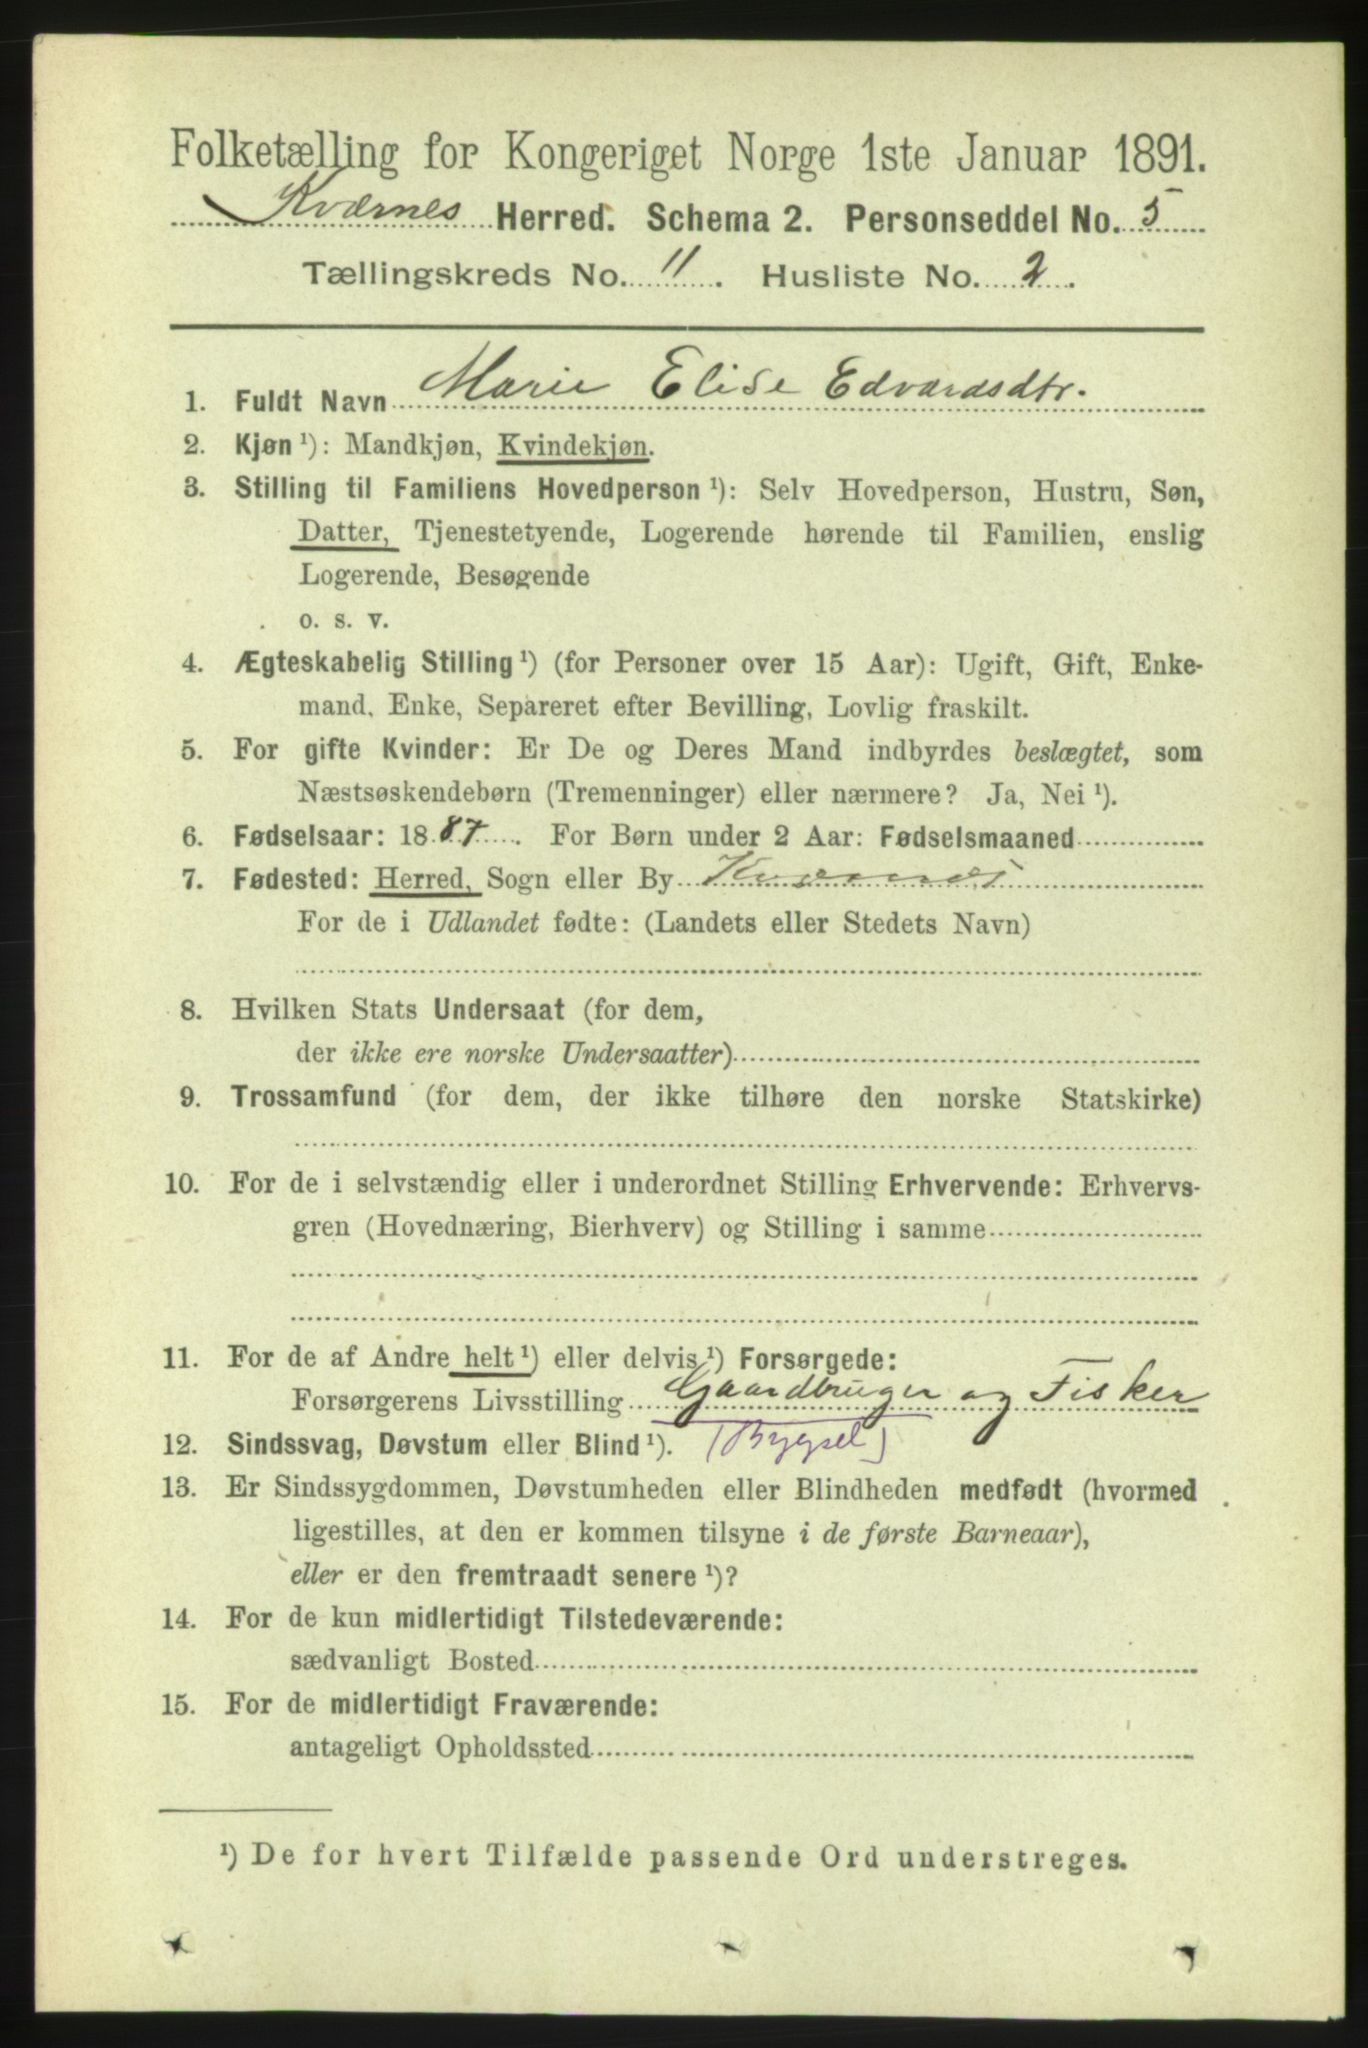 Folketælling for Kongeriget Norge 1ste Januar 1891.
Kværnes Herred. Schema 2. Personseddel No. 5
Tællingskreds No. 11. Husliste No. 2.
1. Fuldt Navn Marie Elise Edvardsdtr.
2. Kjøn ¹): Mandkjøn, Kvindekjøn.
3. Stilling til Familiens Hovedperson ¹): Selv Hovedperson, Hustru, Søn,
Datter, Tjenestetyende, Logerende hørende til Familien, enslig
Logerende, Besøgende
o. s. v.
4. Ægteskabelig Stilling ¹) (for Personer over 15 Aar): Ugift, Gift, Enke-
mand, Enke, Separeret efter Bevilling, Lovlig fraskilt.
5. For gifte Kvinder: Er De og Deres Mand indbyrdes beslægtet, som
Næstsøskendebørn (Tremenninger) eller nærmere? Ja, Nei ¹).
6. Fødselsaar: 1887. For Børn under 2 Aar: Fødselsmaaned
7. Fødested: Herred, Sogn eller By Kværnes
For de i Udlandet fødte: (Landets eller Stedets Navn)
8. Hvilken Stats Undersaat (for dem,
der ikke ere norske Undersaatter)
9. Trossamfund (for dem, der ikke tilhøre den norske Statskirke)
10. For de i selvstændig eller i underordnet Stilling Erhvervende: Erhvervs-
gren (Hovednæring, Bierhverv) og Stilling i samme
11. For de af Andre helt ¹) eller delvis ¹) Forsørgede:
Forsørgerens Livsstilling Gaardbruger og Fisker
12. Sindssvag, Døvstum eller Blind ¹). (Bygsel)
13. Er Sindssygdommen, Døvstumheden eller Blindheden medfødt (hvormed
ligestilles, at den er kommen tilsyne i de første Barneaar),
eller er den fremtraadt senere ¹)?
14. For de kun midlertidigt Tilstedeværende:
sædvanligt Bosted
15. For de midlertidigt Fraværende:
antageligt Opholdssted
¹) De for hvert Tilfælde passende Ord understreges.